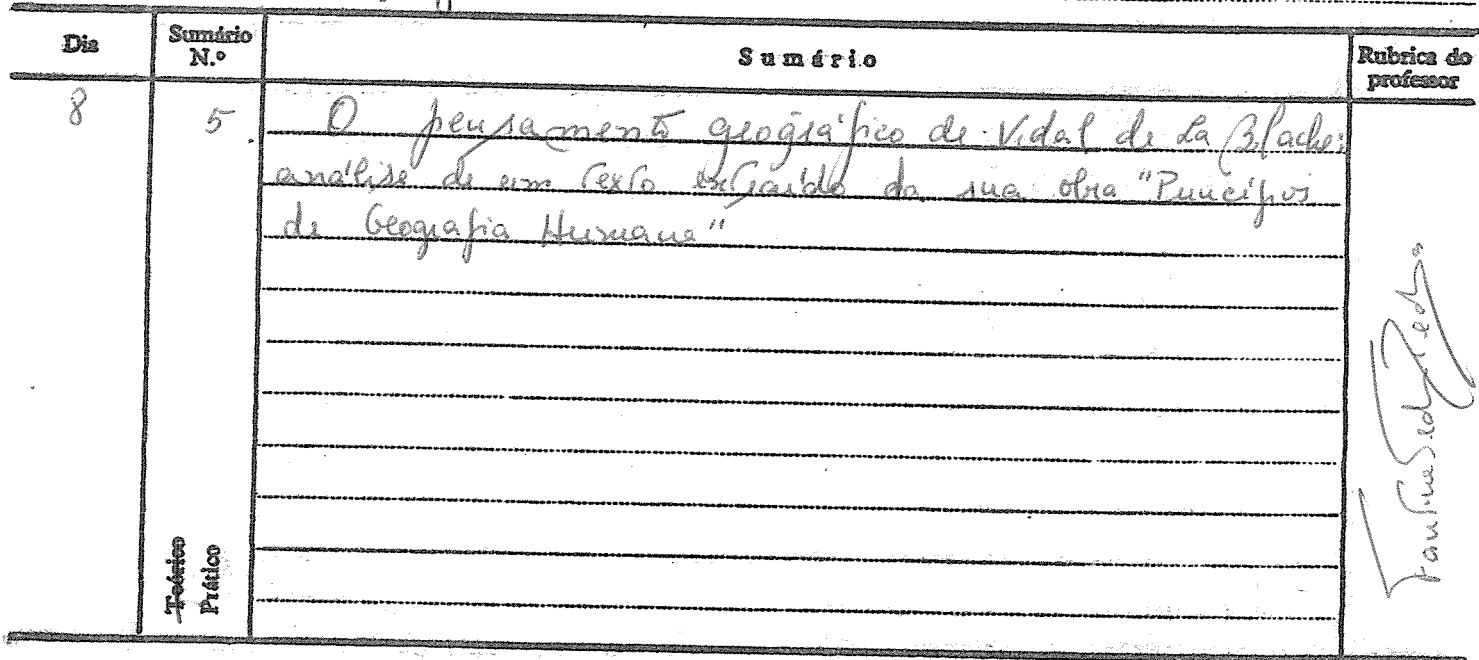 Dia Sumário N.º Sumário Rubrica do professor
8 5 O pensamento geográfico de Vidal de La Blache:
análise de um texto extraído da sua obra "Princípios
de Geografia Humana"
Teórico
Prático